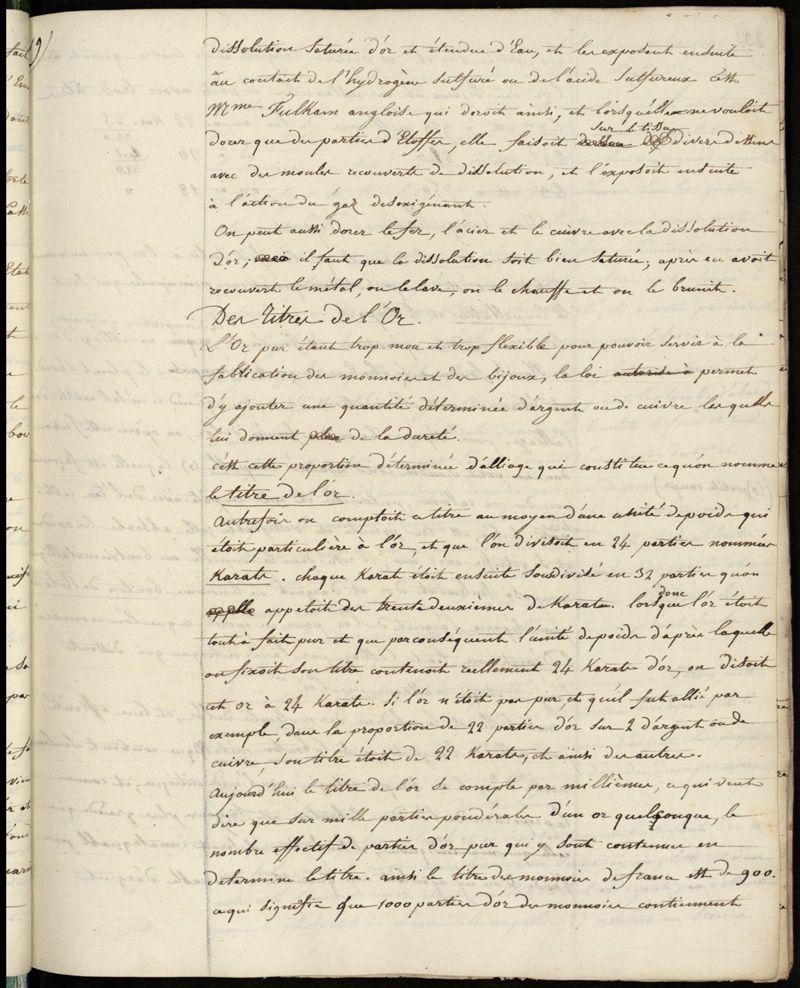 9)
dissolution saturée d'or et étendue d'Eau, et les exposant ensuite
au contact de l'hydrogène sulfuré ou de l'acide sulfureux C'est
Mme Fulham angloise qui doroit ainsi, et lorsqu'elle ne vouloit
dorer que des parties d'Etoffes, elle faisoit dessus sur le tissu divers dessins
avec des moules recouverts de dissolution, et l'exposoit ensuite
à l'action du gaz desoxigénant.
On peut aussi dorer le fer, l'acier et le cuivre avec la dissolution
d'or; mais il faut que la dissolution soit bien saturée; après en avoir
recouvert le métal, on le lave, on le chauffe et on le brunit.
Des titres de l'Or.
L'Or pur étant trop mou et trop flexible pour pouvoir servir à la
fabrication des monnoies et des bijoux, la loi autorise à permet
d'y ajouter une quantité déterminée d'argent ou de cuivre lesquels
lui donnent plus de la dureté.
c'est cette proportion déterminée d'alliage qui constitue ce qu'on nomme
le titre de l'or.
Autrefois on comptoit ce titre au moyen d'une unité de poids qui
étoit particulière à l'or, et que l'on divisoit en 24 parties nommées
Karats. chaque Karat étoit ensuite soudivisé en 32 parties qu'on
appelle appeloit des trente deuxièmes de Karats. lors donc que l'or étoit
tout à fait pur et que par conséquent l'unité de poids d'après laquelle
on fixoit son titre contenoit réellement 24 Karats d'or, on disoit
cet or à 24 Karats. Si l'or n'étoit pas pur, et qu'il fut allié par
exemple, dans la proportion de 22 parties d'or sur 2 d'argent ou de
cuivre, son titre étoit de 22 Karats, et ainsi des autres.
Aujourd'hui le titre de l'or se compte par millièmes, ce qui veut
dire que sur mille parties pondérales d'un or quelconque, le
nombre effectif de parties d'or pur qui y sont contenues en
determine le titre. ainsi le titre des monnoies de france est de 900.
ce qui signifie que 1000 parties d'or des monnoies contiennent